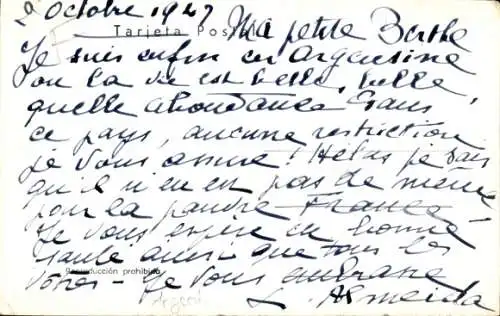 2 Octobre 1947 Ma petite Berthe
Tarjeta Postal
Je suis enfin en Argentine
ou la vie est belle, belle,
quelle abondance dans
ce pays, aucune restriction
je vous assure! Hélas je sais
qu'il n'en est pas de même
pour la pauvre France
Je vous espère en bonne
santé ainsi que tous les
vôtres - Je vous embrasse
Reproducción prohibida
L. Almeida
Argent